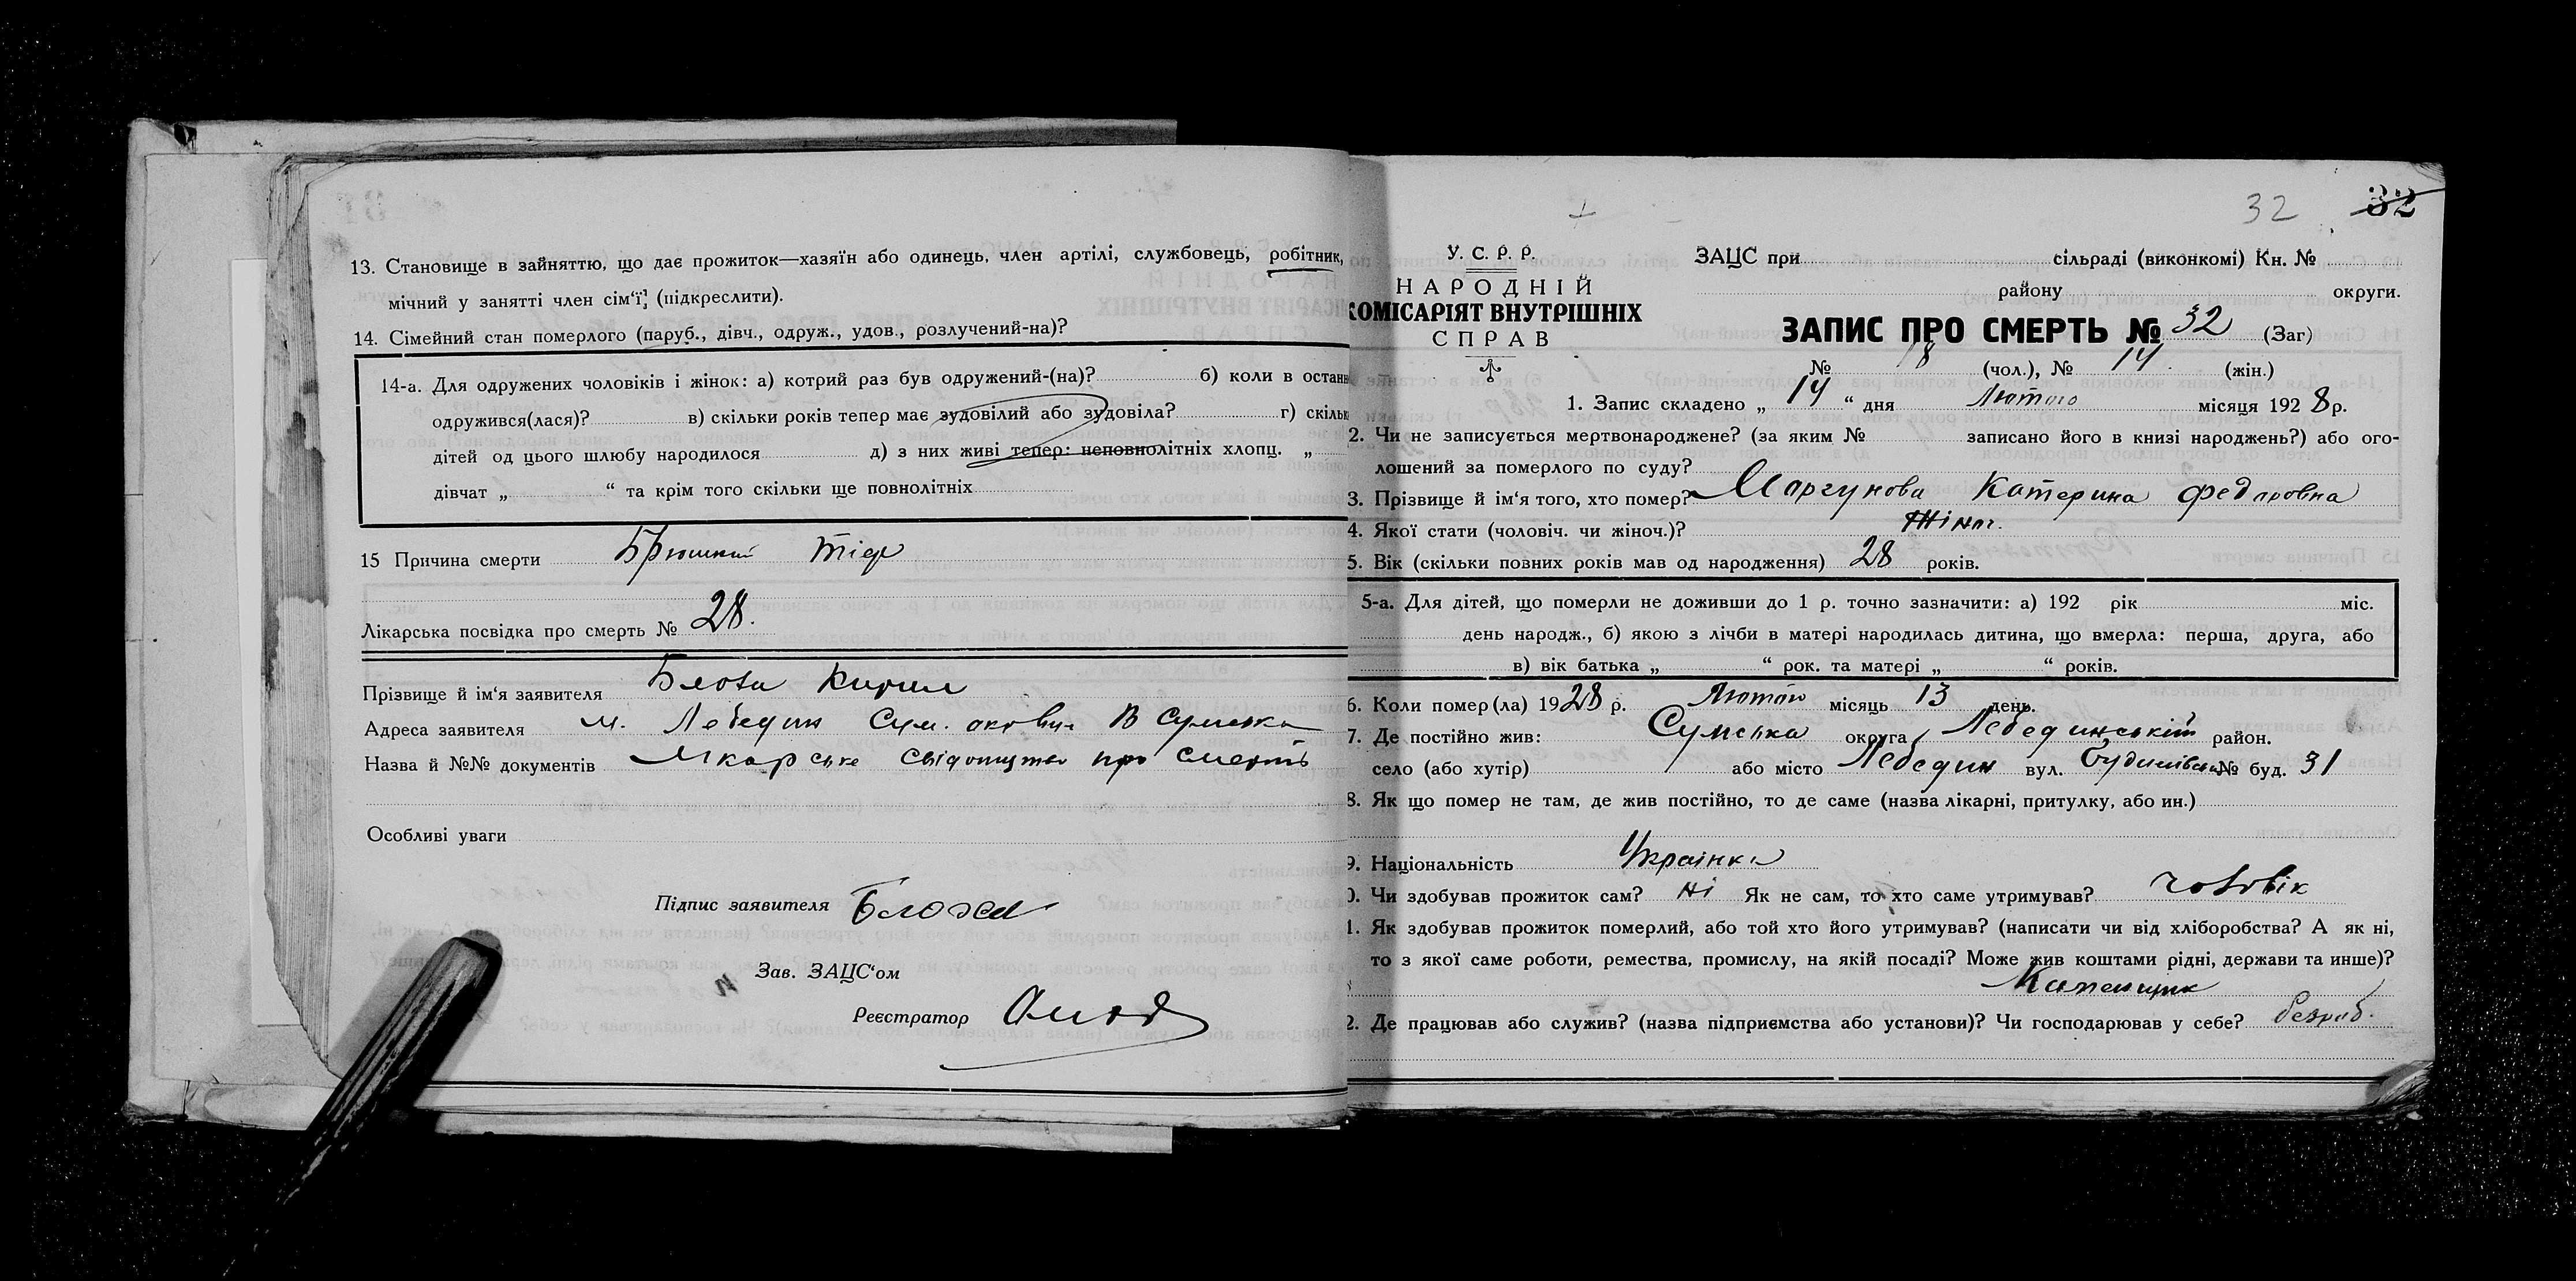 13. Становище в зайняттю, що дає прожиток—хазяїн або одинець, член артілі, службовець, робітник,
мічний у занятті член сім'ї, (підкреслити).
14. Сімейний стан померлого (паруб., дівч., одруж., удов., розлучений-на)?
14-а. Для одружених чоловіків і жінок: а) котрий раз був одружений-(на)? б) коли в останн
одружився(лася)? в) скільки років тепер має зудовілий або зудовіла? г) скільк
дітей од цього шлюбу народилося д) з них живі тепер: неповнолітніх хлопц. „
дівчат „ “ та крім того скільки ще повнолітніх
15 Причина смерти Брюшний тіф
Лікарська посвідка про смерть № 28.
Прізвище й ім'я заявителя Блоха Кирил
Адреса заявителя м. Лебедин Сум. В Сумська
Назва й №№ документів Лікарське свідоцтво про смерть
Особливі уваги
Підпис заявителя Блоха
Зав. ЗАЦС'ом
Реєстратор
32 32
У. С. Р. Р.
НАРОДНІЙ
КОМІСАРІЯТ ВНУТРІШНІХ
СПРАВ
ЗАЦС при сільраді (виконкомі) Кн. №
району округи.
ЗАПИС ПРО СМЕРТЬ № 32 (Заг)
№ 18 (чол.), № 14 (жін.)
1. Запис складено „ 14 “ дня Лютого місяця 1928 р.
2. Чи не записується мертвонароджене? (за яким № записано його в книзі народжень?) або ого-
лошений за померлого по суду?
3. Прізвище й ім'я того, хто помер? Моргунова Катерина Федоровна
4. Якої стати (чоловіч. чи жіноч.)? Жіноч.
5. Вік (скільки повних років мав од народження) 28 років.
5-а. Для дітей, що померли не доживши до 1 р. точно зазначити: а) 192 рік міс.
день народж., б) якою з лічби в матері народилась дитина, що вмерла: перша, друга, або
в) вік батька „ “ рок. та матері „ “ років.
6. Коли помер(ла) 1928 р. Лютой місяць 13 день.
7. Де постійно жив: Сумська округа Лебединський район.
село (або хутір) або місто Лебедин вул. № буд. 31
8. Як що помер не там, де жив постійно, то де саме (назва лікарні, притулку, або ин.)
9. Національність Українка
0. Чи здобував прожиток сам? ні Як не сам, то хто саме утримував? чоловік
1. Як здобував прожиток померлий, або той хто його утримував? (написати чи від хліборобства? А як ні,
то з якої саме роботи, ремества, промислу, на якій посаді? Може жив коштами рідні, держави та инше)?
2. Де працював або служив? (назва підприємства або установи)? Чи господарював у себе? безроб.